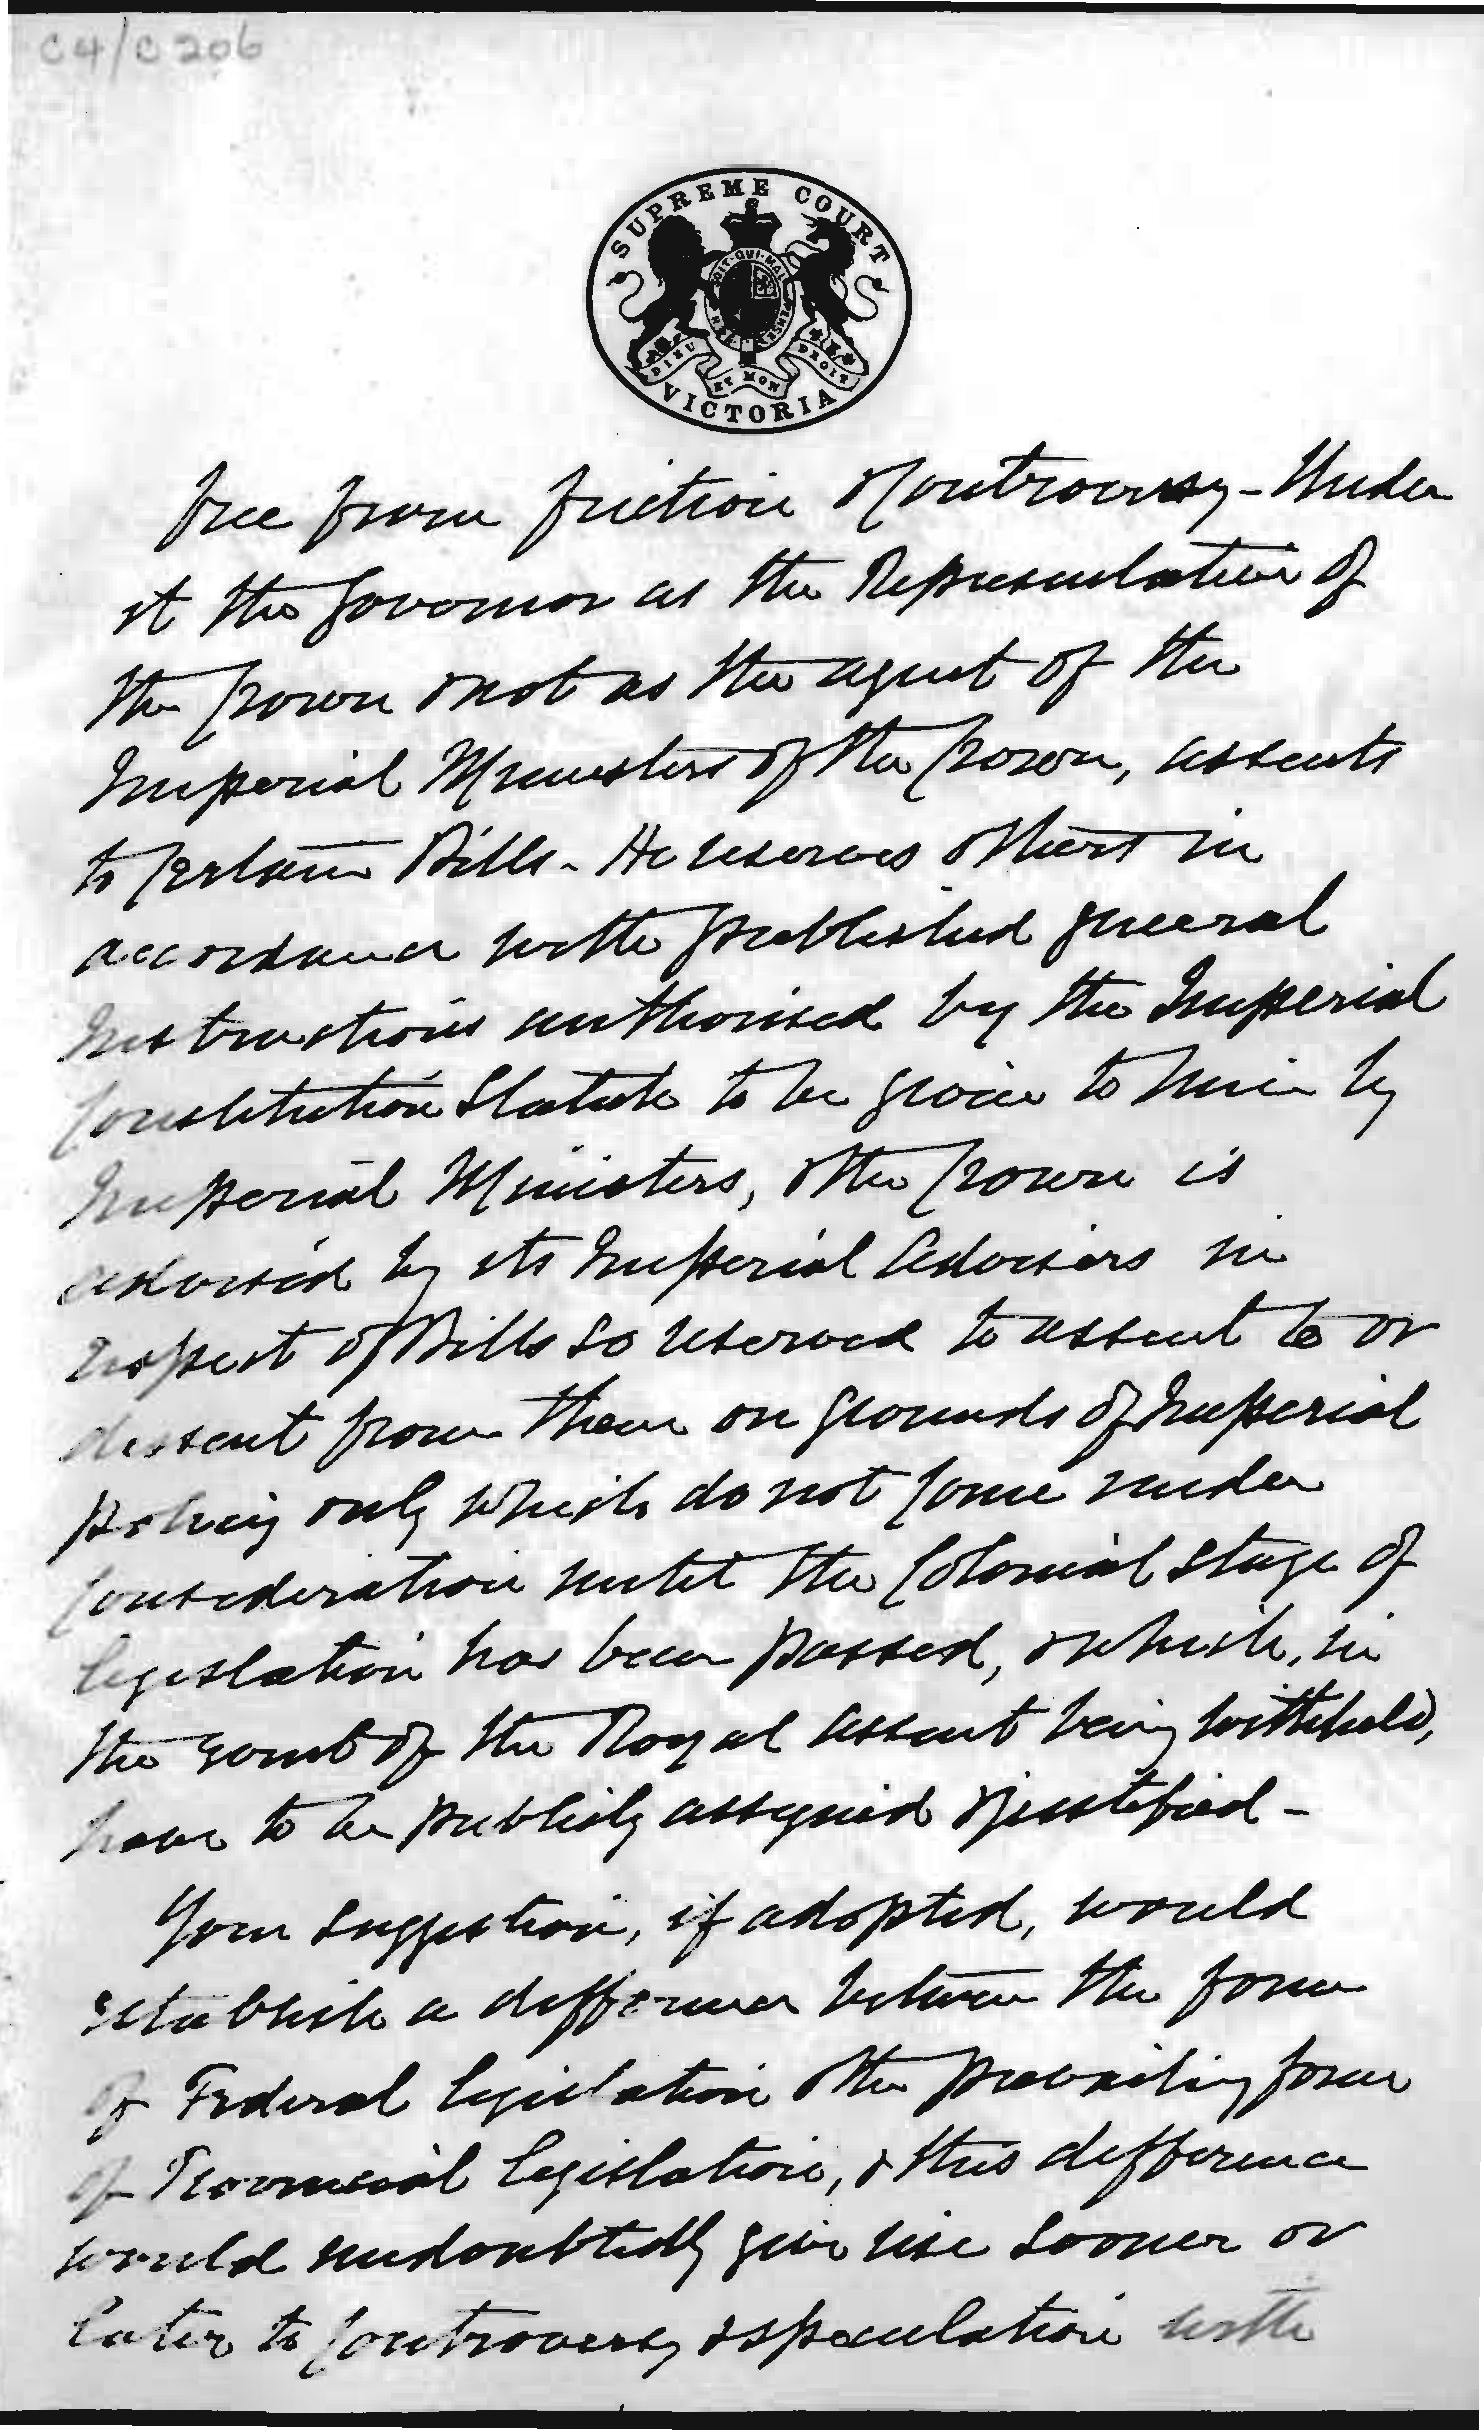 C4/C206
SUPREME COURT
HONI SOIT QUI MAL Y PENSE
DIEU ET MON DROIT
VICTORIA
free from friction & controversy - Under
it the Governor as the Representative of
the Crown & not as the agent of the
Imperial Ministers of the Crown, assents
to certain Bills - He reserves others in
accordance with published general
Instructions authorised by the Imperial
Constitution Statute to be given to him by
Imperial Ministers, & the Crown is
advised by its Imperial Advisers in
respect of Bills so reserved to assent to or
dissent from them on grounds of Imperial
policy only which do not come under
consideration until the Colonial stage of
legislation has been passed, & which, in
the event of the Royal assent being withheld,
have to be publicly assigned & justified -
Your suggestion, if adopted, would
establish a difference between the form
of Federal legislation & the prevailing form
of Provincial legislation, & this difference
would undoubtedly give rise sooner or
later to controversy & speculation with